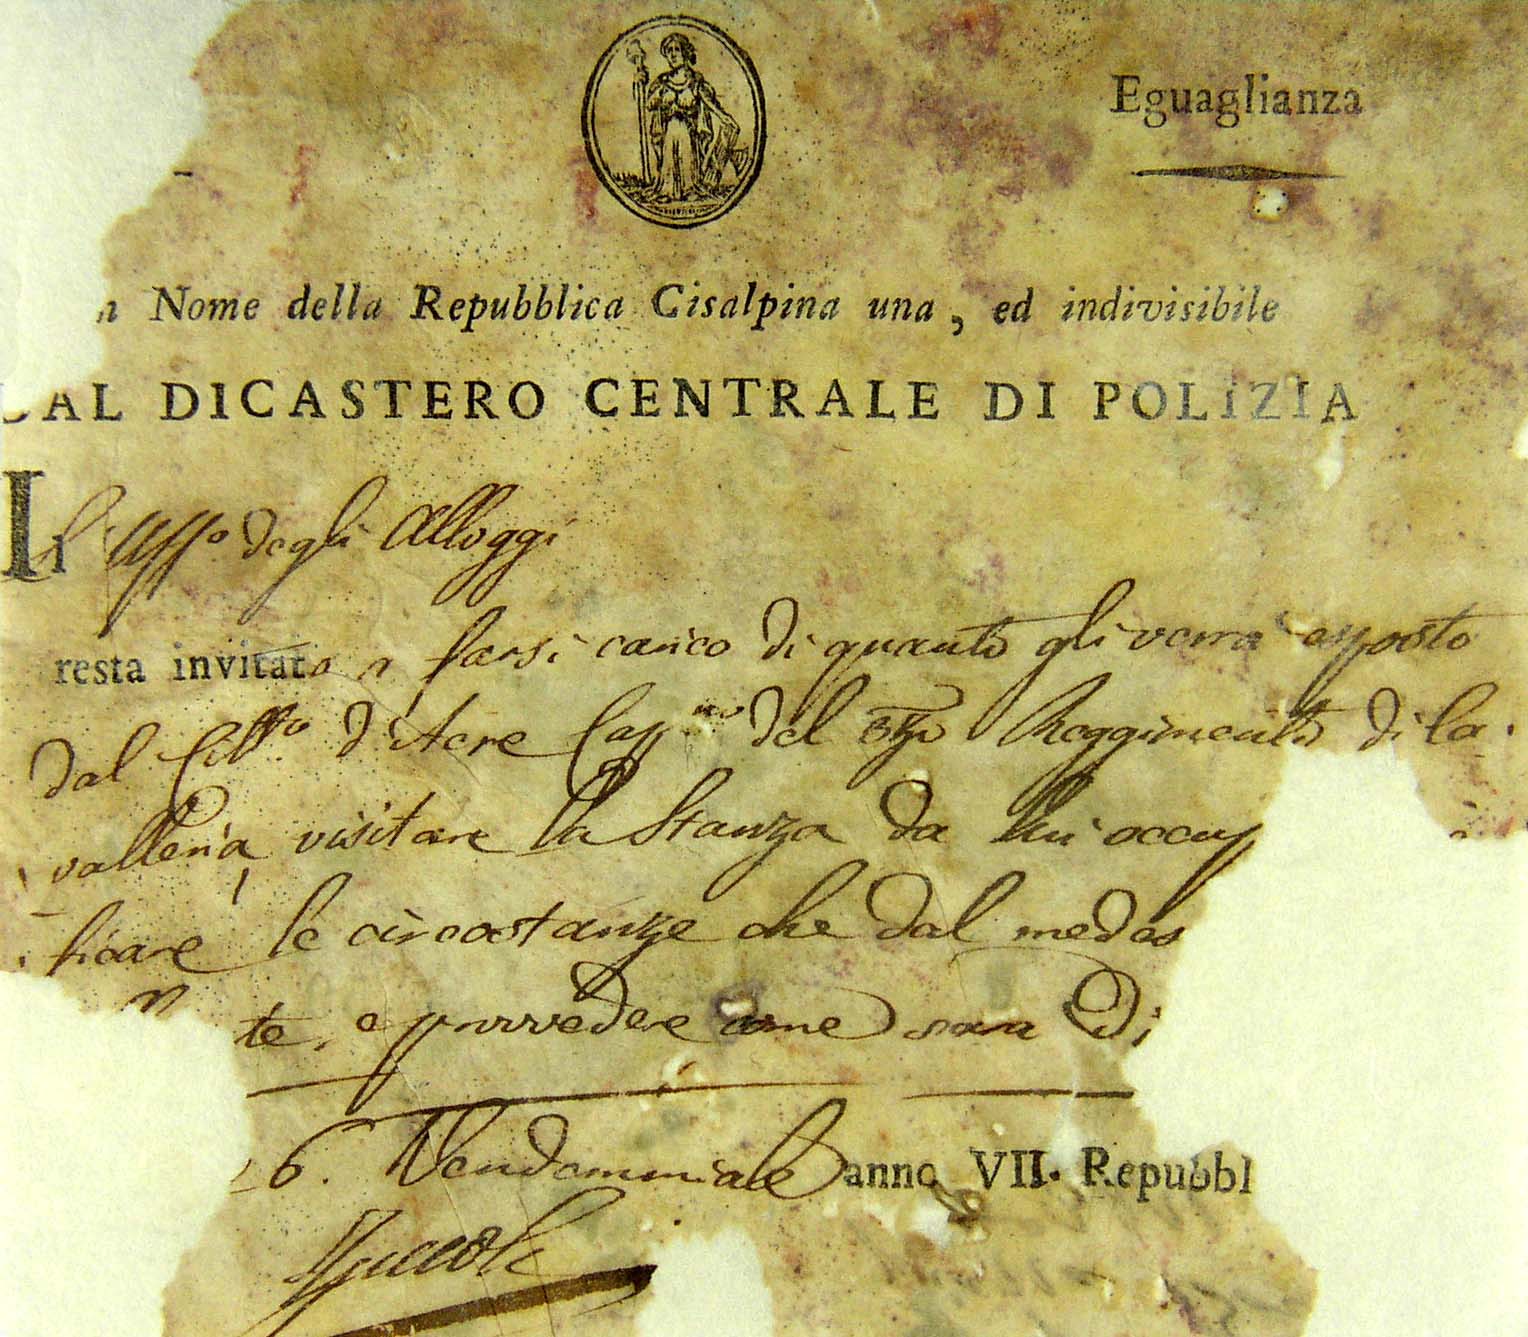 Eguaglianza
n Nome della Repubblica Cisalpina una, ed indivisibile
DAL DICASTERO CENTRALE DI POLIZIA
Il L' Uff.o degli Alloggi
resta invitato a farsi carico di quanto gli verrà esposto
dal Citt.o d'Acre Capp.no del Reggimento di Ca
valleria, visitare la Stanza da lui occup
ficare le circostanze che dal medes
te, e provvedere come sarà di
26. Vendemmiale anno VII. Repubbl